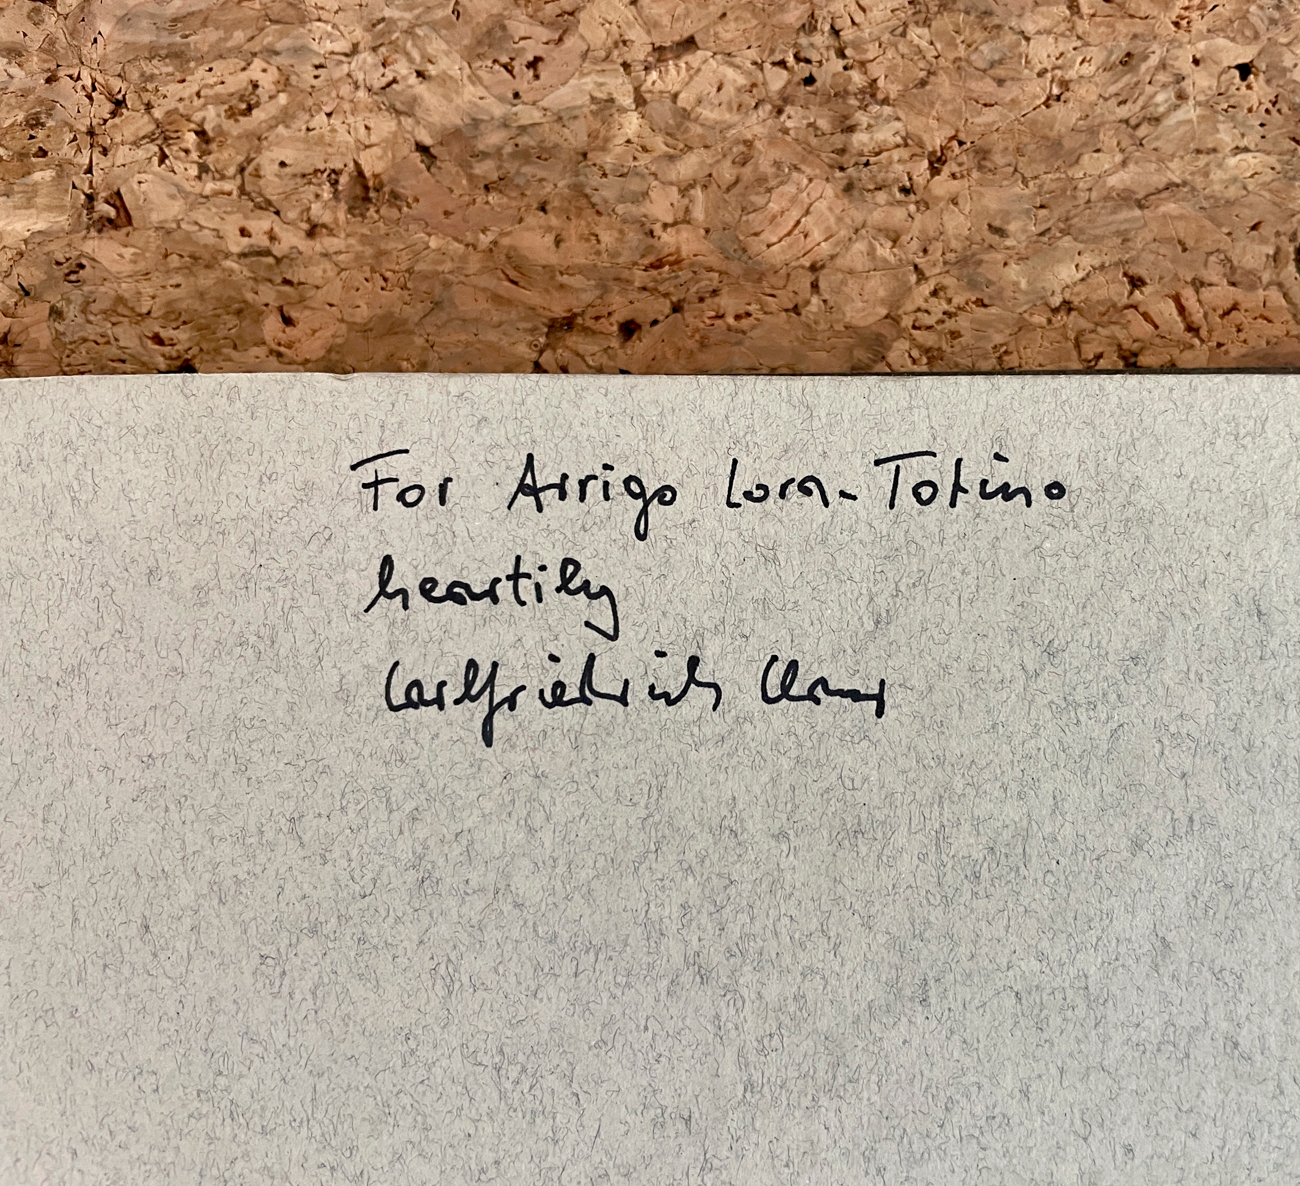 For Arrigo Lora-Totino
heartily
Carlfriedrich Claus